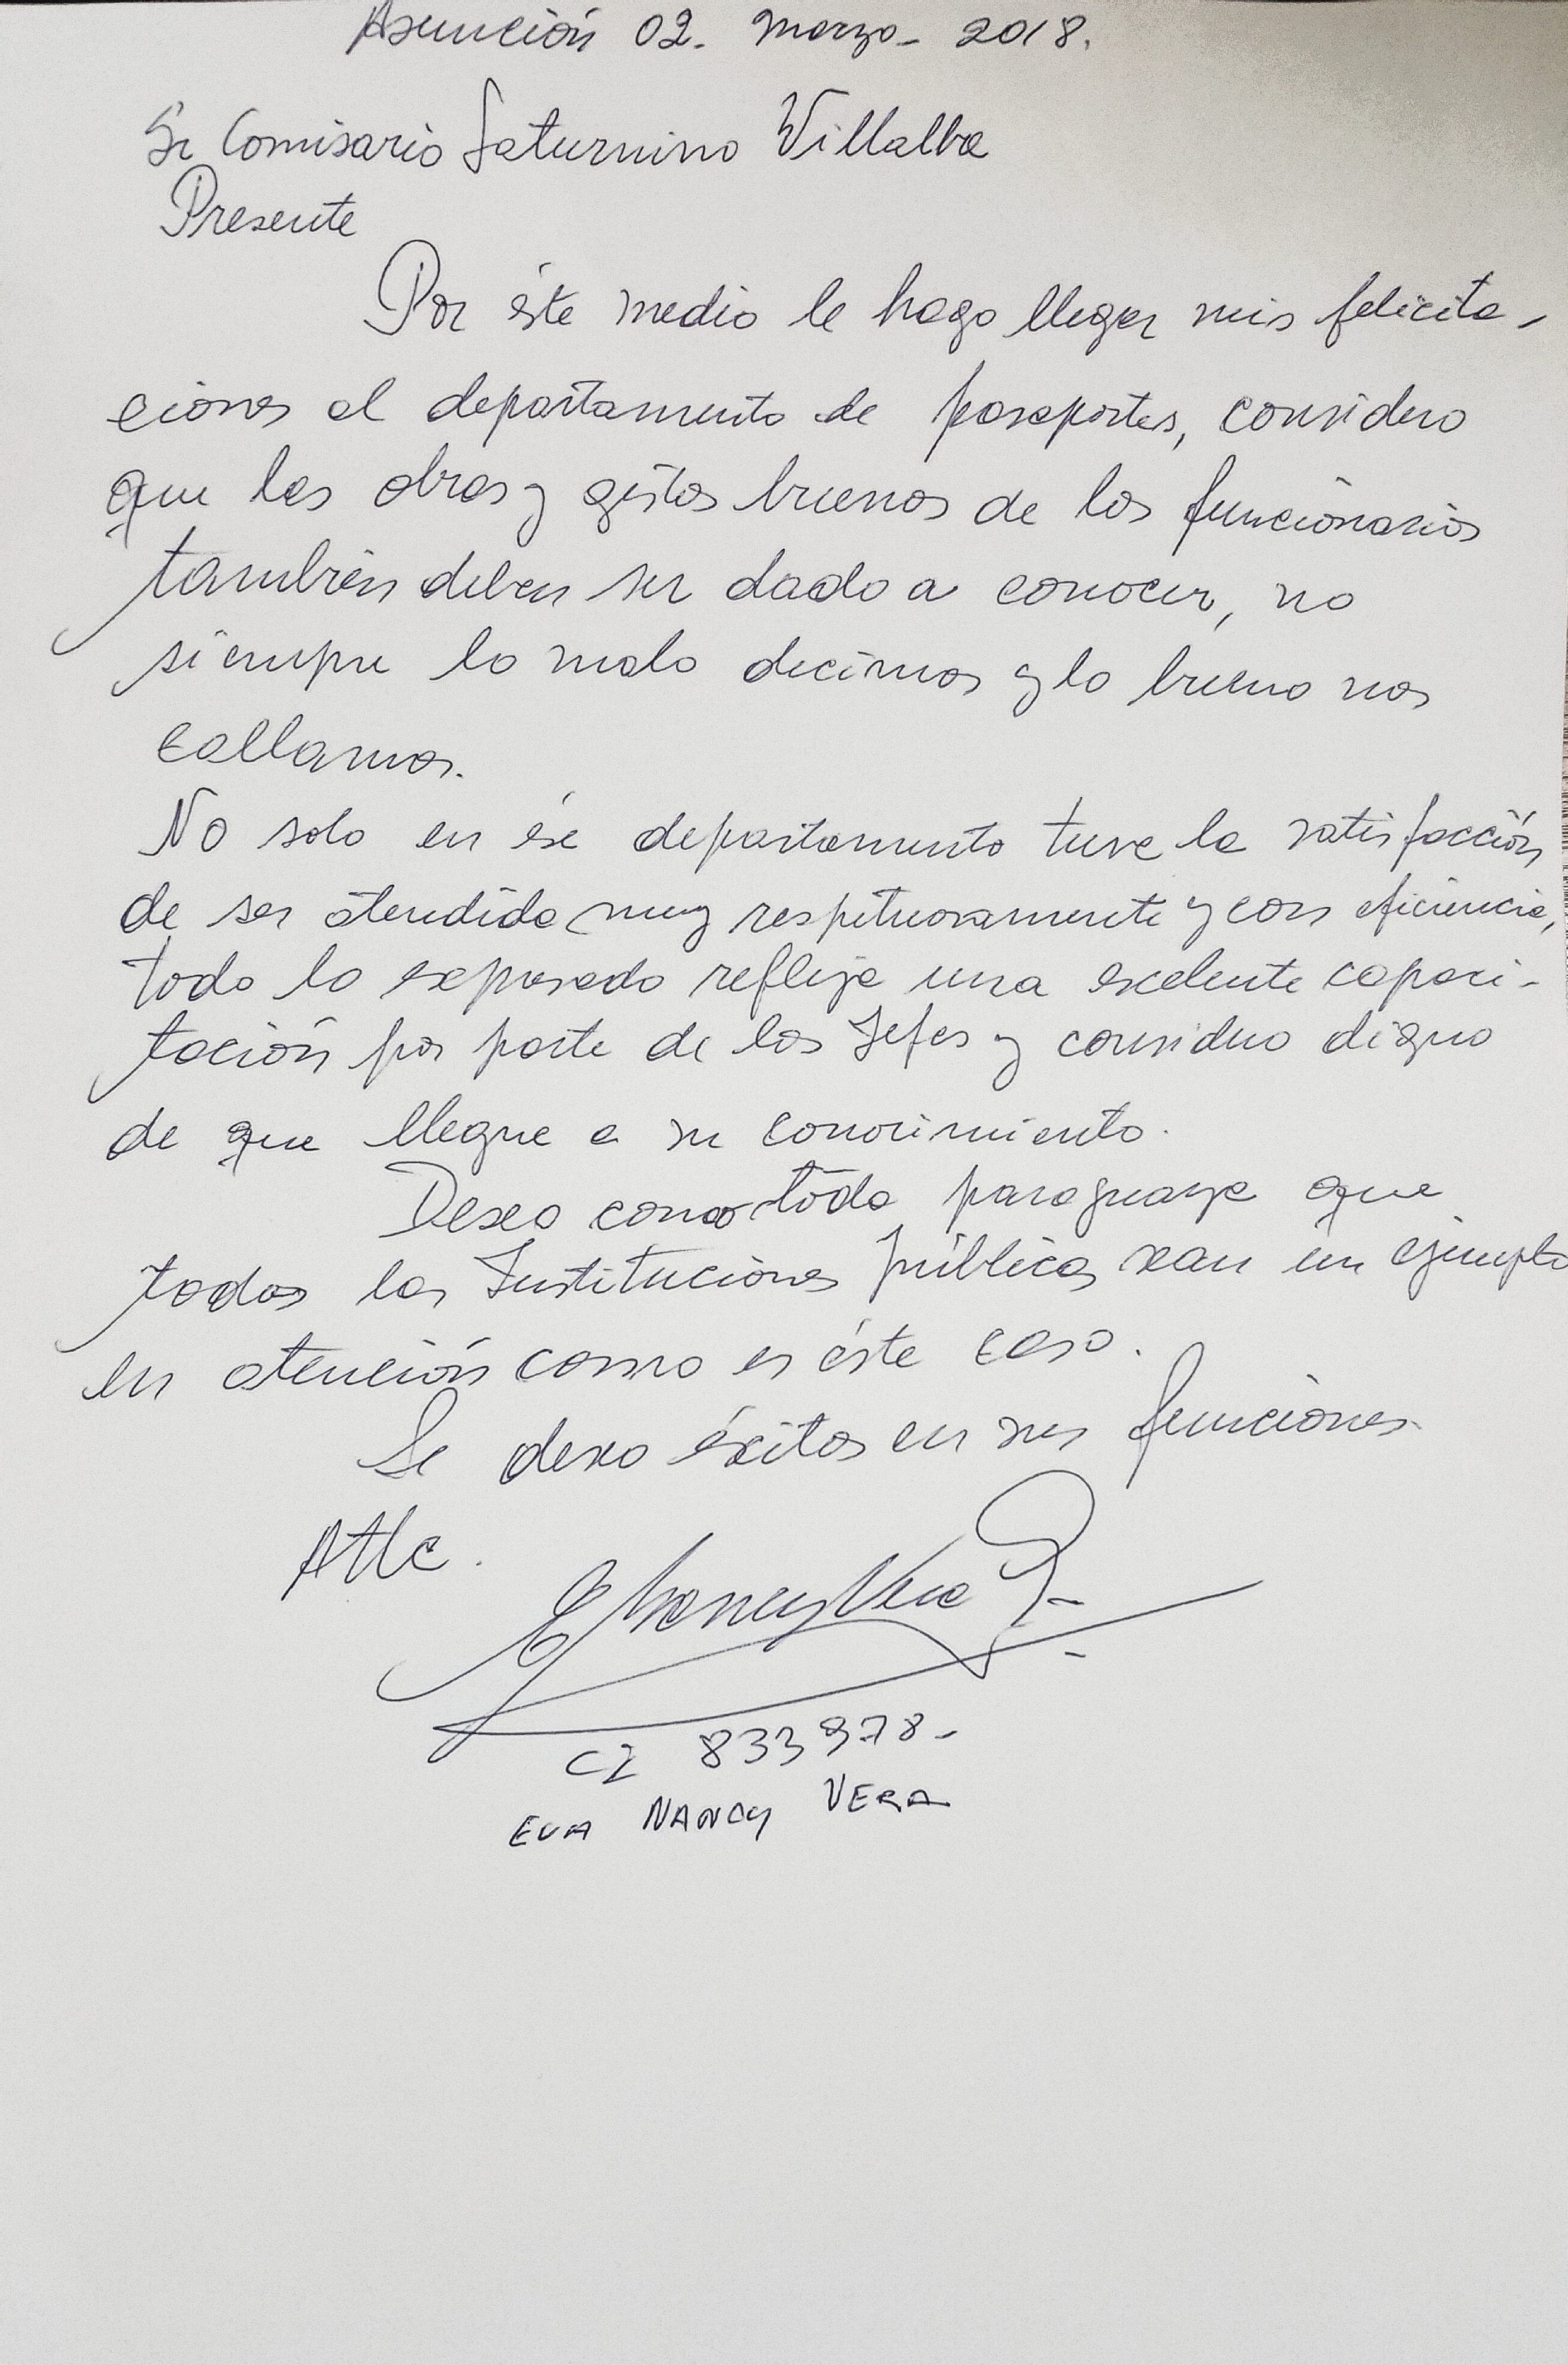 Asunción 02. Marzo- 2018.
Sr Comisario Saturnino Villalba
Presente
Por éste medio le hago llegar mis felicita-
ciones al departamento de pasaportes, considero
que las obras y gestos buenos de los funcionarios
también deben ser dado a conocer, no
siempre lo malo decimos y lo bueno nos
callamos.
No solo en ése departamento tuve la satisfacción
de ser atendida muy respetuosamente y con eficiencia,
todo lo expresado refleja una excelente capaci-
tación por parte de los Jefes y considero digno
de que llegue a su conocimiento.
Deseo como toda paraguaya que
todas las Instituciones públicas sean un ejemplo
en atención como es éste caso.
Le deseo éxitos en sus funciones.
Atte.
Nancy Vera
CI 833978-
EVA NANCY VERA